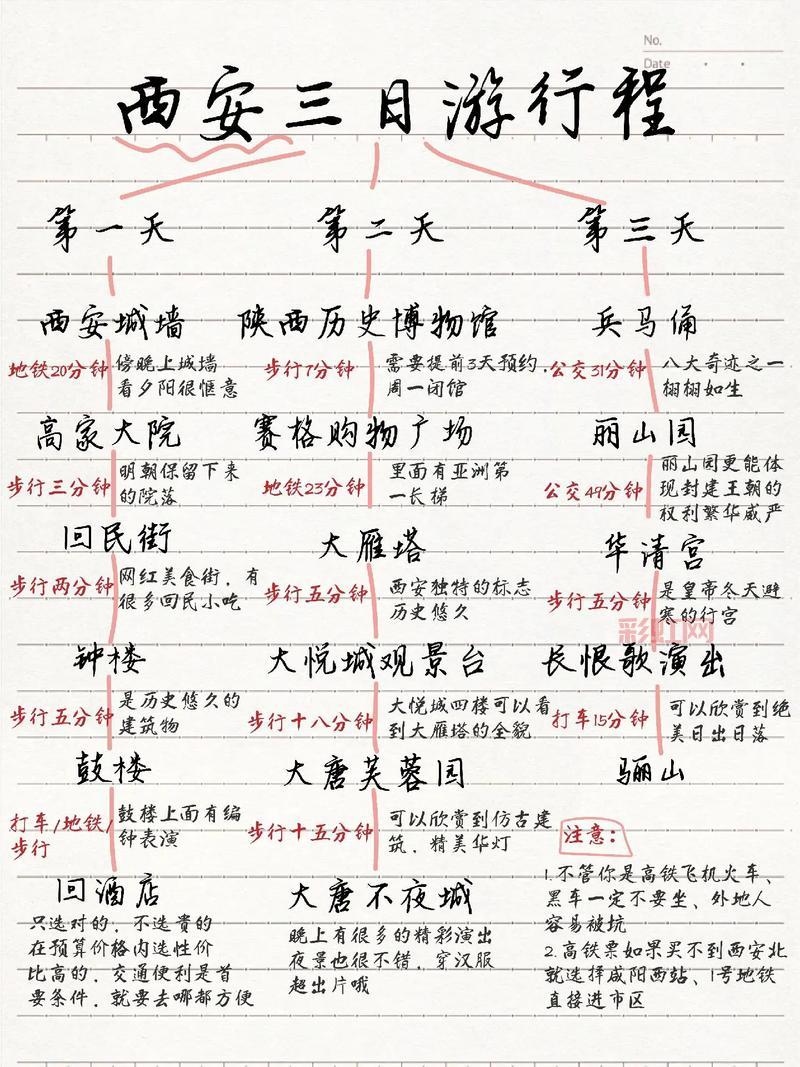 No.
Date
西安三日游行程
第一天
西安城墙
地铁20分钟
傍晚上城墙
看夕阳很惬意
高家大院
步行三分钟
明朝保留下来
的院落
回民街
步行两分钟
网红美食街，有
很多回民小吃
钟楼
步行五分钟
是历史悠久的
建筑物
鼓楼
打车/地铁/
步行
鼓楼上面有编
钟表演
回酒店
只选对的，不选贵的
在预算价格内选性价
比高的，交通便利是首
要条件，就要去哪都方便
第二天
陕西历史博物馆
步行7分钟
需要提前3天预约，
周一闭馆
赛格购物广场
地铁23分钟
里面有亚洲第
一长梯
大雁塔
步行五分钟
西安独特的标志
历史悠久
大悦城观景台
步行十八分钟
大悦城四楼可以看
到大雁塔的全貌
大唐芙蓉园
步行十五分钟
可以欣赏到仿古建
筑，精美华灯
大唐不夜城
晚上有很多的精彩演出
夜景也很不错，穿汉服
超出片哦
第三天
兵马俑
公交31分钟
八大奇迹之一
栩栩如生
丽山园
公交49分钟
丽山园更能体
现封建王朝的
权利繁华威严
华清宫
步行五分钟
是皇帝冬天避
寒的行宫
彩虹网
长恨歌演出
打车15分钟
可以欣赏到绝
美日出日落
骊山
注意：
1.不管你是高铁飞机火车、
黑车一定不要坐、外地人
容易被坑
2.高铁票如果买不到西安北
就选择咸阳西站、1号地铁
直接进市区